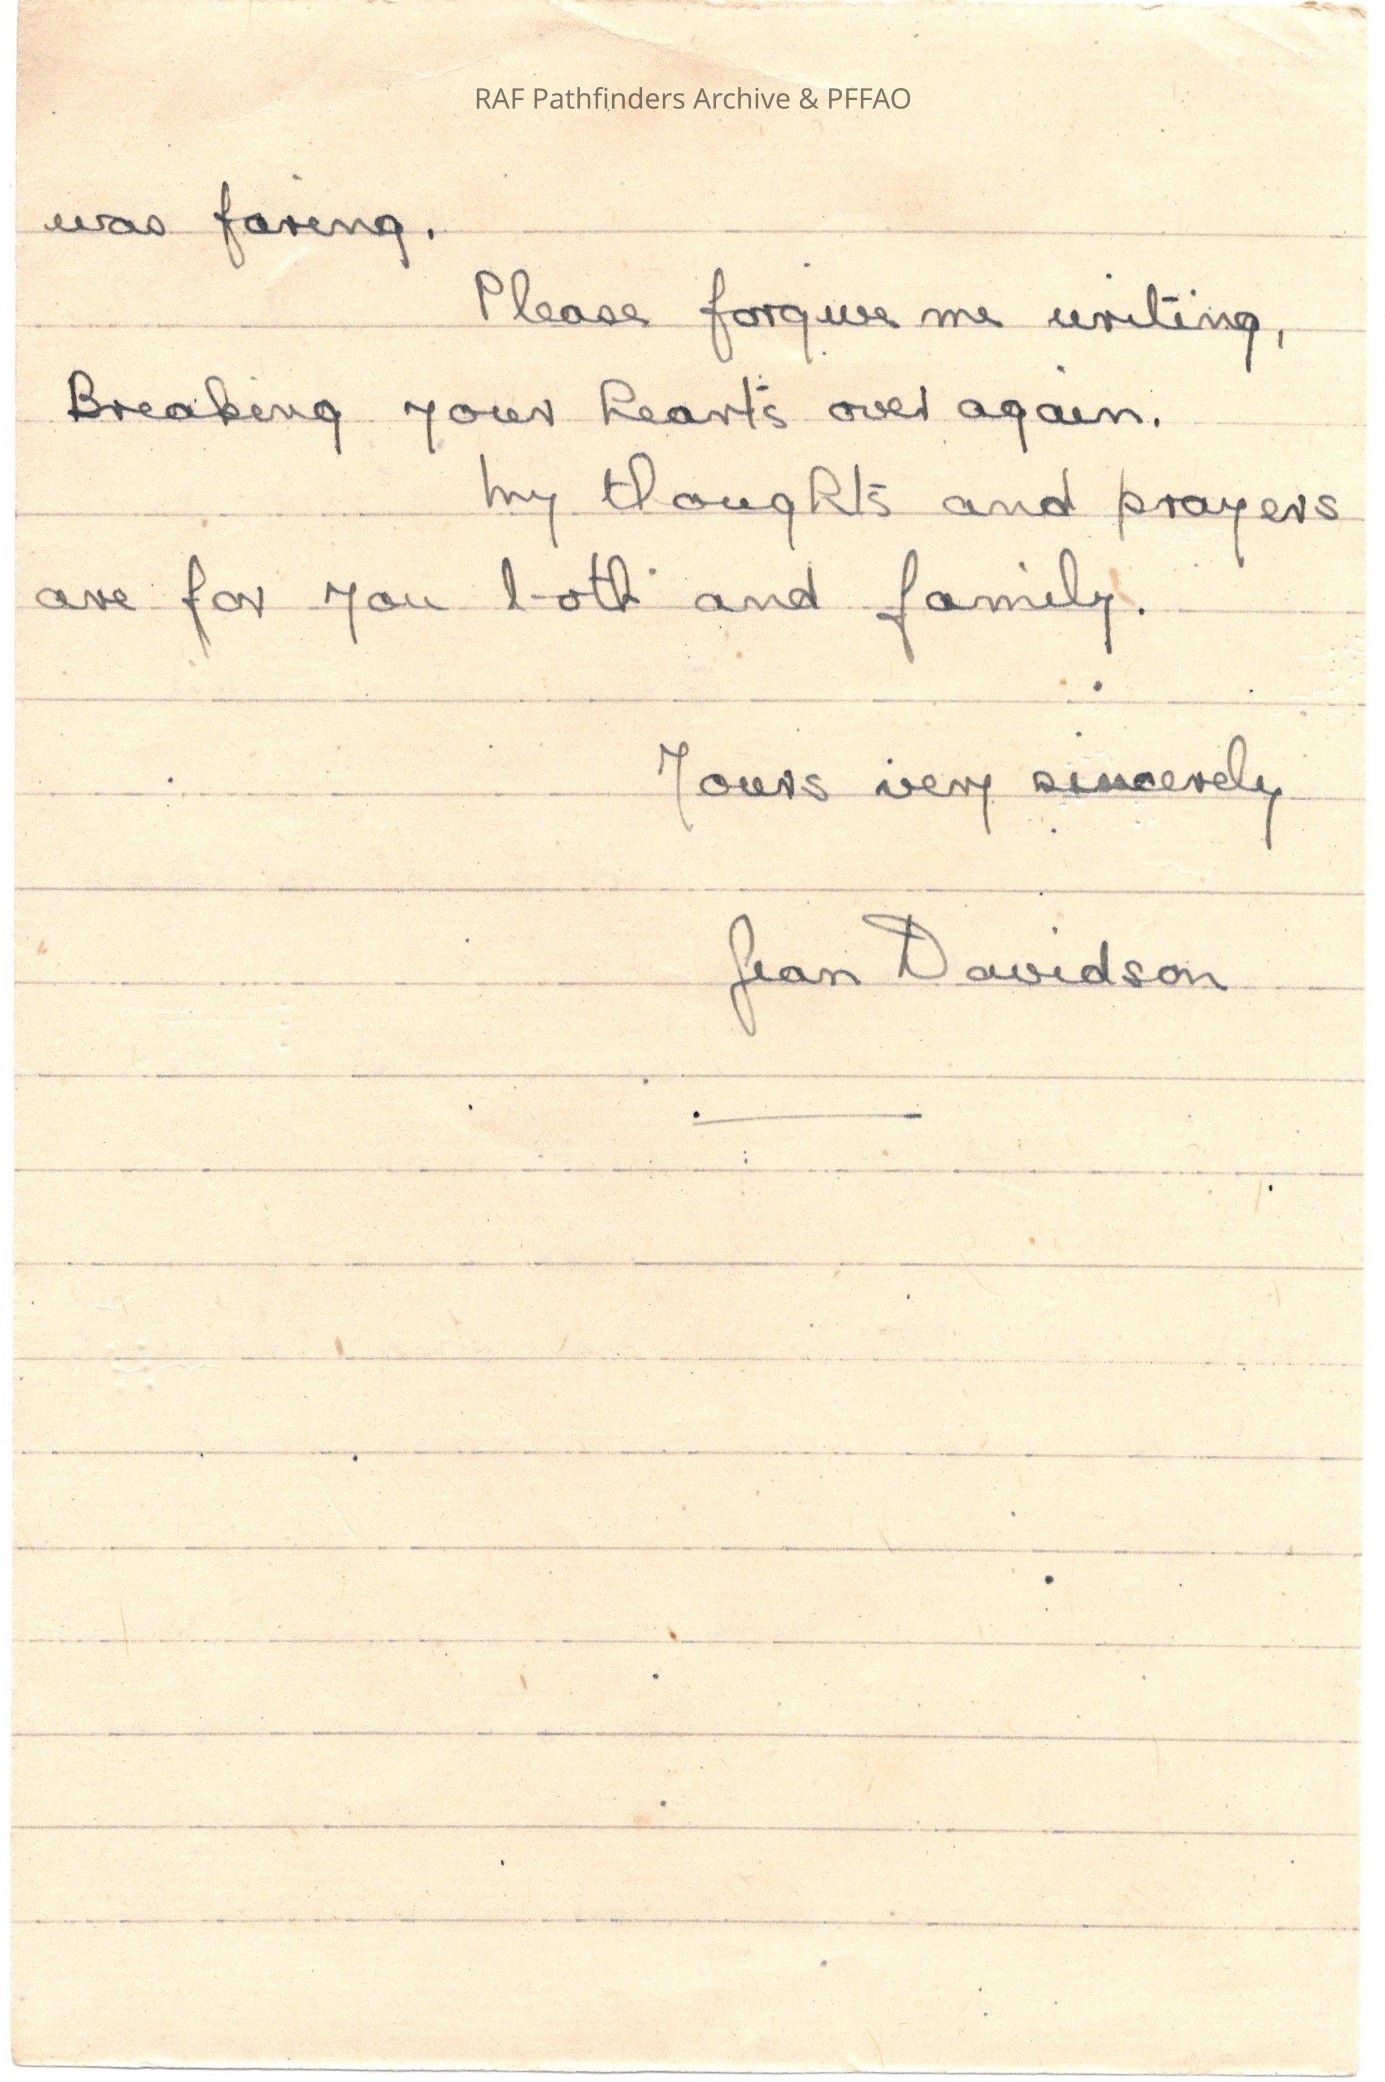 RAF Pathfinders Archive & PFFAO
was faring.
Please forgive me writing,
Breaking your hearts over again.
My thoughts and prayers
are for you both and family.
Yours very sincerely
Jean Davidson